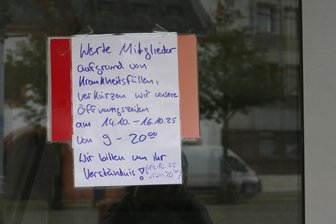 Werte Mitglieder
aufgrund von
Krankheitsfällen,
verkürzen wir unsere
Öffnungszeiten
am 14.10. - 16.10.25
von 9 - 20⁰⁰
Wir bitten um ihr
Verständnis!